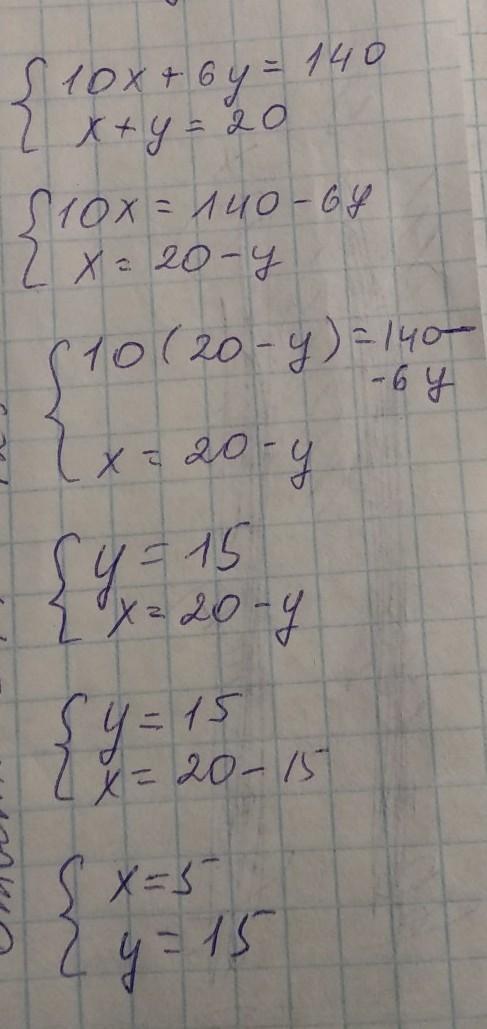 10x + 6y = 140
x + y = 20
10x = 140 - 6y
x = 20 - y
10(20 - y) = 140 -
- 6y
x = 20 - y
y = 15
x = 20 - y
y = 15
x = 20 - 15
x = 5
y = 15